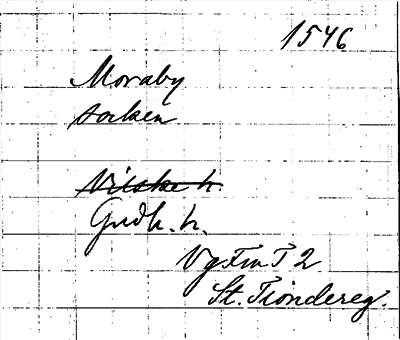 1546
Moraby
socken
Vilske h.
Gudh. h.
Vg Fm T 2
St. Tiondereg.